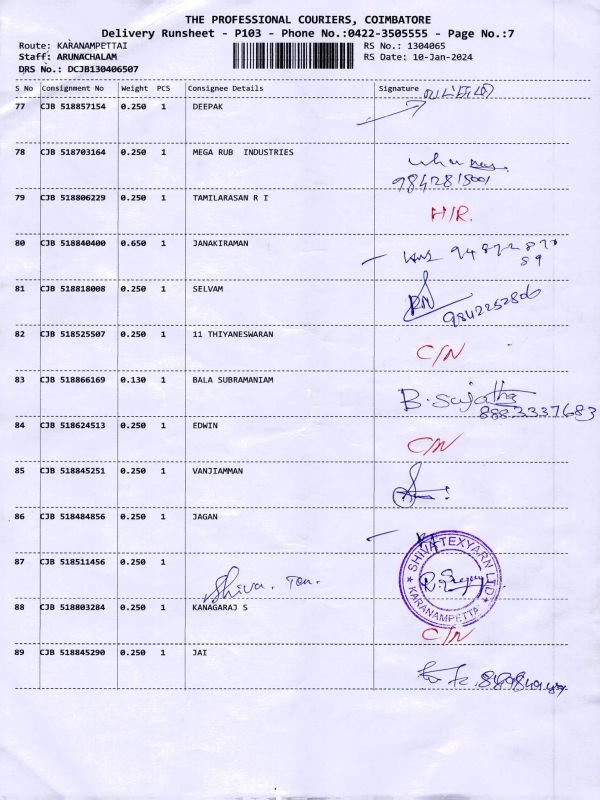 THE PROFESSIONAL COURIERS, COIMBATORE
Delivery Runsheet - P103 - Phone No.:0422-3505555 - Page No.:7
Route: KARANAMPETTAI RS No.: 1304065
Staff: ARUNACHALAM RS Date: 10-Jan-2024
DRS No.: DCJB130406507
S No Consignment No Weight PCS Consignee Details Signature
77 CJB 518857154 0.250 1 DEEPAK
78 CJB 518703164 0.250 1 MEGA RUB INDUSTRIES
9842815001
79 CJB 518806229 0.250 1 TAMILARASAN R I H/R.
80 CJB 518840400 0.650 1 JANAKIRAMAN
81 CJB 518818008 0.250 1 SELVAM
9842252806
82 CJB 518525507 0.250 1 11 THIYANESWARAN C/N
83 CJB 518866169 0.130 1 BALA SUBRAMANIAM B. Sujatha
8883337683
84 CJB 518624513 0.250 1 EDWIN C/N
85 CJB 518845251 0.250 1 VANJIAMMAN
86 CJB 518484856 0.250 1 JAGAN
SHIVA TEXYARN LTD
KARANAMPETTAI
87 CJB 518511456 0.250 1 Shiva. Tex.
88 CJB 518803284 0.250 1 KANAGARAJ S C/N
89 CJB 518845290 0.250 1 JAI